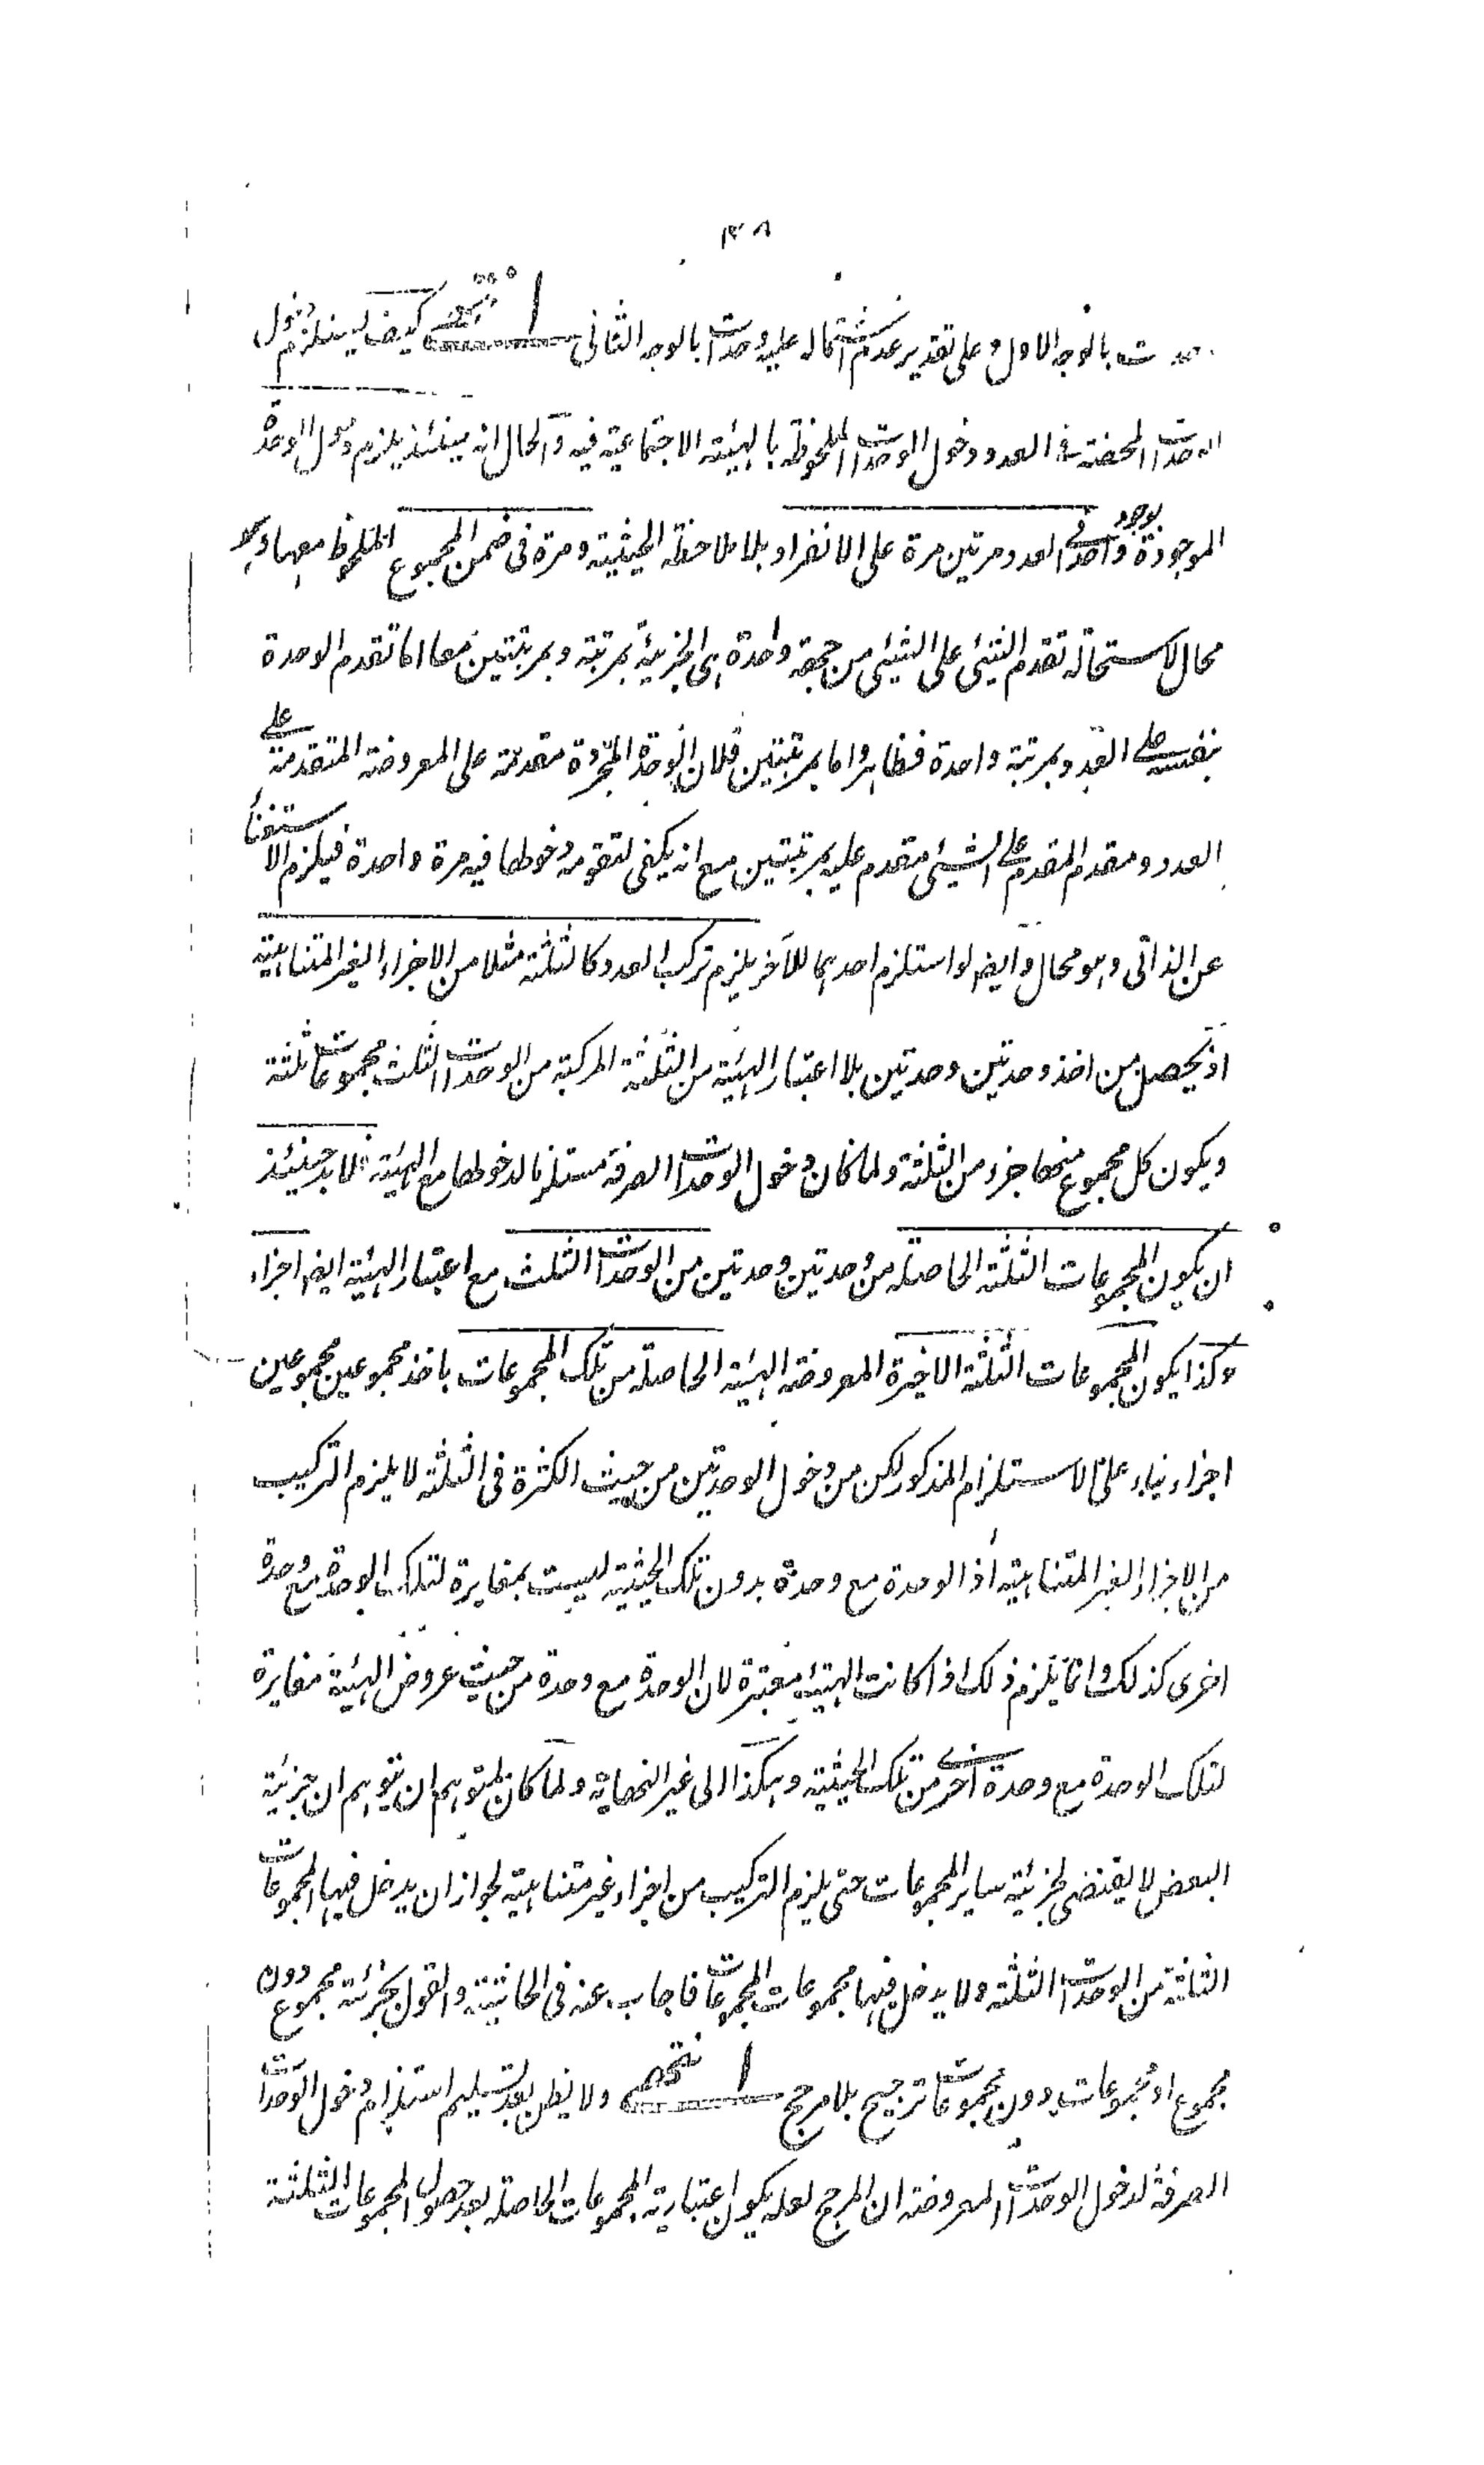 ١٣٨
بالوجه الاول وعلى تقدير عدم اشتماله عليه وحدات بالوجه الثانى انتهى كيف يستلزم دخول
الوحدات المحضة فى العدد دخول الوحدات الملحوظة بالهيئة الاجتماعية فيه والحال انه حينئذ يلزم دخول الوحدة
الموجودة بوجود واحد فى العدد مرتين مرة على الانفراد بلا ملاحظة الحيثية ومرة فى ضمن المجموع الملحوظ معها وهو
محال لاستحالة تقدم الشيئ على الشيئ من جهة واحدة هى الجزئية بمرتبة وبمرتبتين معا اما تقدم الوحدة
بنفسها على العدد بمرتبة واحدة فظاهر واما بمرتبتين فلان الوحدة المجردة مقدمة على المعروضة المتقدمة على
العدد ومقدم المقدم على الشيئ متقدم عليه بمرتبتين مع انه يكفى لتقومه دخولها فيه مرة واحدة فيلزم الاستغناء
عن الذاتى وهو محال وايضا لو استلزم احدهما للآخر يلزم تركب العدد كالثلثة مثلا من الاجزاء الغير المتناهية
اذ يحصل من اخذ وحدتين وحدتين بلا اعتبار الهيئة من الثلثة المركبة من الوحدات الثلث مجموعات ثلثة
ويكون كل مجموع منها جزء من الثلثة ولما كان دخول الوحدات الصرفة مستلزما لدخولها مع الهيئة فلا بد حينئذ
ان يكون المجموعات الثلثة الحاصلة من وحدتين وحدتين من الوحدات الثلث مع اعتبار الهيئة ايضا اجزاء
وكذا يكون المجموعات الثلثة الاخيرة المعروضة الهيئة الحاصلة من تلك المجموعات باخذ مجموعين مجموعين
اجزاء بناء على الاستلزام المذكور لكن من دخول الوحدتين من حيث الكثرة فى الثلثة لا يلزم التركيب
من الاجزاء الغير المتناهية اذ الوحدة مع وحدة بدون تلك الحيثية ليست بمغايرة لتلك الوحدة مع وحدة
اخرى كذلك وانما يلزم ذلك اذا كانت الهيئة معتبرة لان الوحدة مع وحدة من حيث عروض الهيئة مغايرة
لتلك الوحدة مع وحدة اخرى من تلك الحيثية وهكذا الى غير النهاية ولما كان لمتوهم ان يتوهم ان جزئية
البعض لا يقتضى لجزئية ساير المجموعات حتى يلزم التركيب من اجزاء غير متناهية لجواز ان يدخل فيها المجموعات
الثلثة من الوحدات الثلثة ولا يدخل فيها مجموعات المجموعات فاجاب عنه فى الحاشية والقول بجزئية مجموع دون
مجموع او مجموعات دون مجموعات ترجيح بلا مرجح انتهى ولا يظن بعد تسليم استلزام دخول الوحدات
الصرفة لدخول الوحدات المعروضة ان المرجح لعله يكون اعتبارية المجموعات الحاصلة بعد حصول المجموعات الثلثة